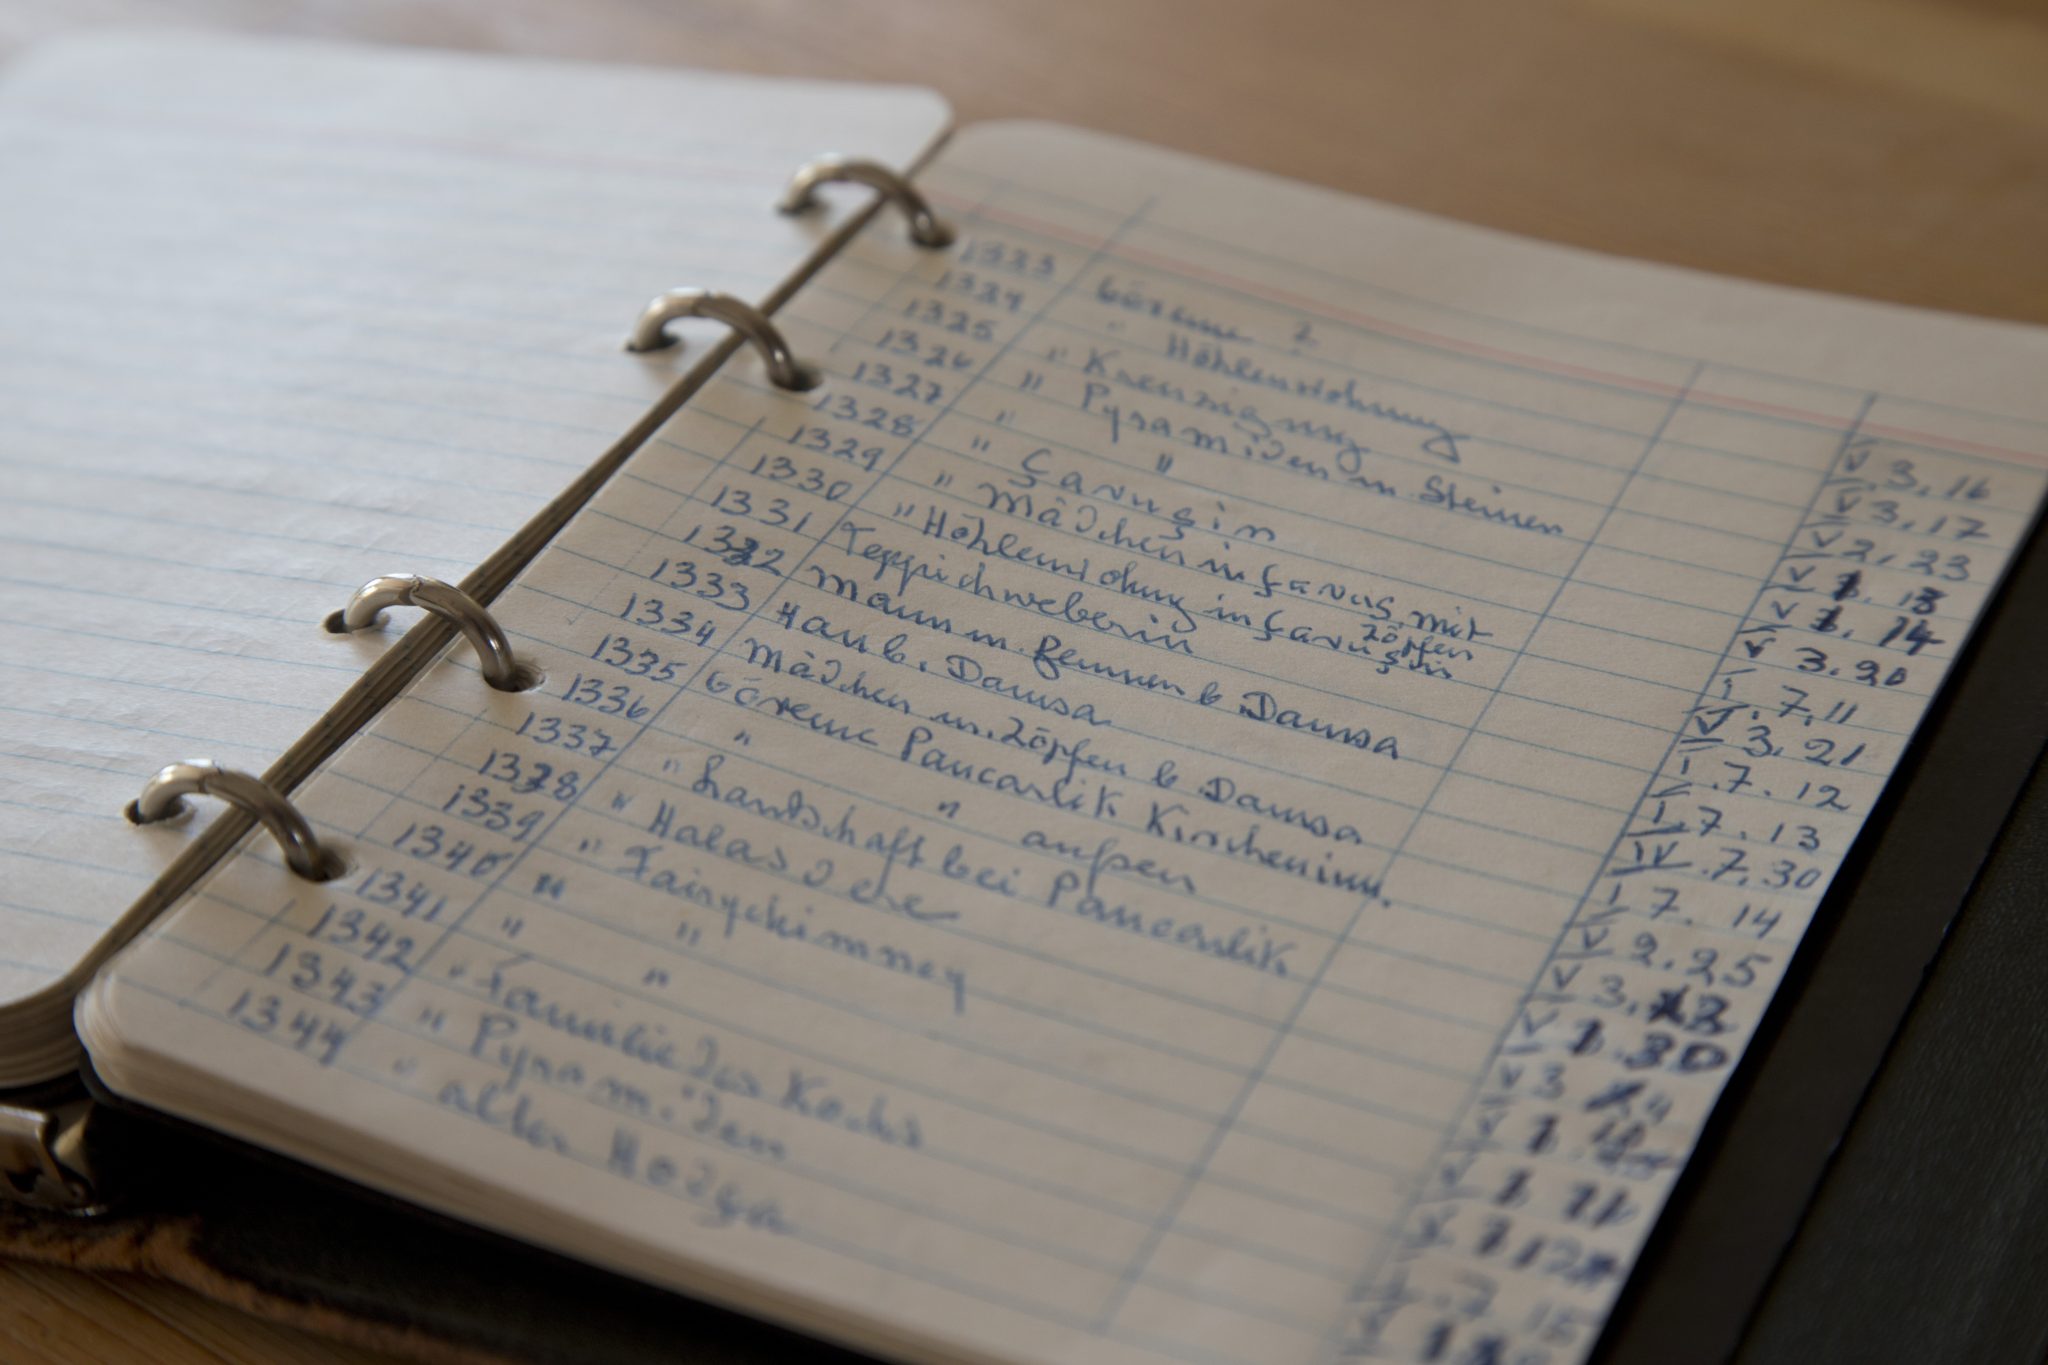 1323 Göreme 2 V 3.16
1324 " Höhlenwohnung V 3.17
1325 " Kreuzigung V 2.23
1326 " Pyramiden m. Steinen V 1.13
1327 " " V 1.14
1328 " Çavuşin V 3.20
1329 " Mädchen in Çavuş. mit Zöpfen I.7.11
1330 " Höhlenwohng in Çavuşin V 3.21
1331 Teppichweberin I.7.12
1332 Mann m. b Damsa I.7.13
1333 Hau b. Damsa IV.7.30
1334 Mädchen m. Zöpfen b Damsa I 7.14
1335 Göreme Pancarlik Kircheninn. V 2.25
1336 " " außen V 3.
1337 " Landschaft bei Pancarlik V
1338 " Halasdere V 3
1339 " Fairychimney V
1340 " " V
1341 " "
1342 " Familie des Kochs
1343 " Pyramiden
1344 " alter Hodja